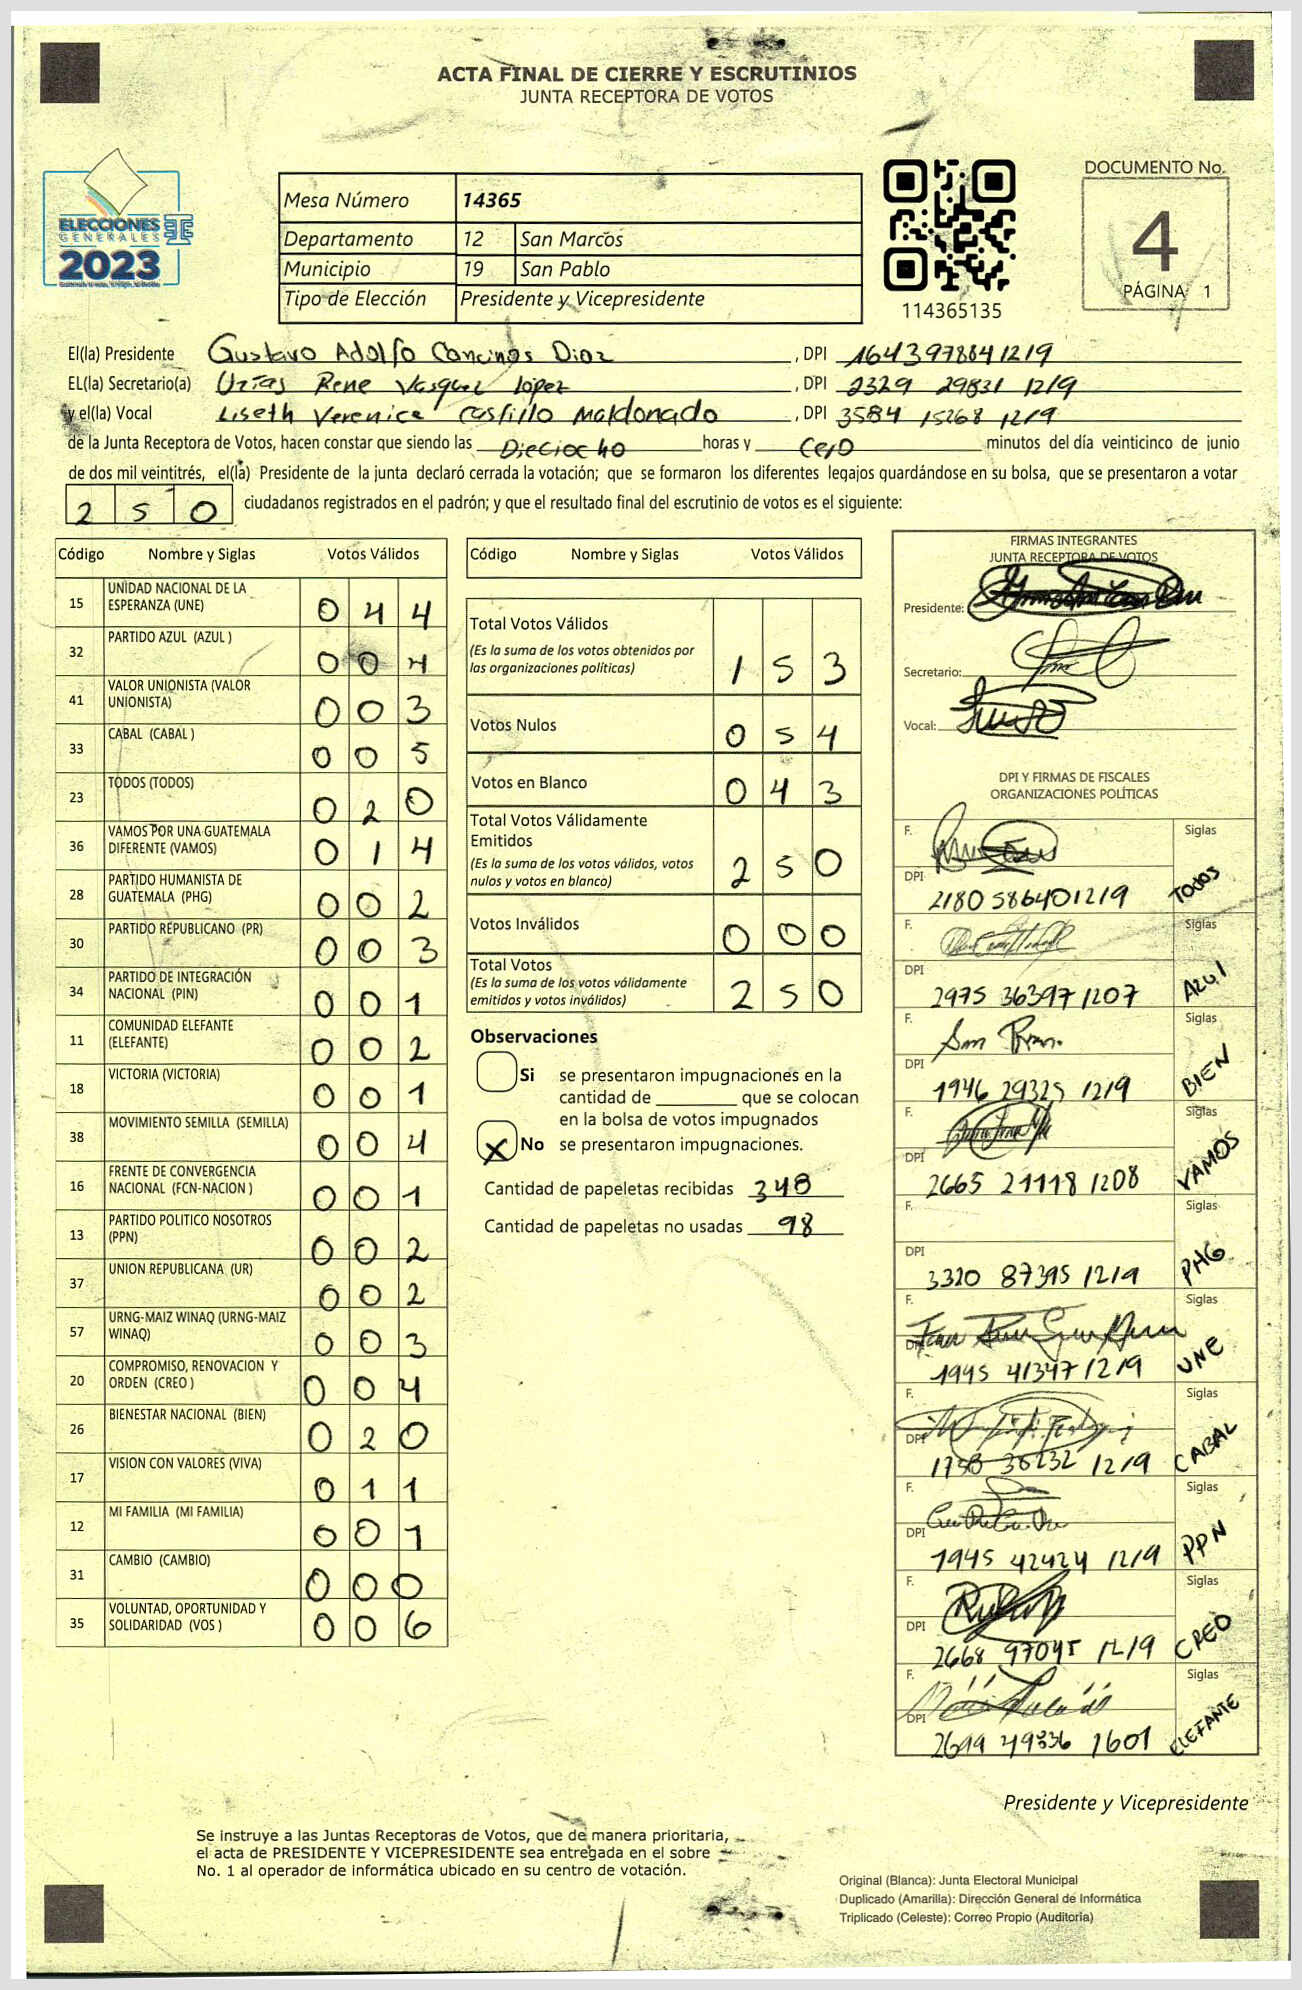 ACTA FINAL DE CIERRE Y ESCRUTINIOS
JUNTA RECEPTORA DE VOTOS
ELECCIONES
GENERALES
2023
Mesa Número 14365
Departamento 12 San Marcos
Municipio 19 San Pablo
Tipo de Elección Presidente y Vicepresidente
114365135
DOCUMENTO No.
4
PÁGINA 1
El(la) Presidente Gustavo Adolfo Concinos Diaz, DPI 1643978841219
EL(la) Secretario(a) Urías Rene Vasquez López, DPI 2329 29831 1219
y el(la) Vocal Liseth Verenice Castillo Maldonado, DPI 3584 15268 1219
de la Junta Receptora de Votos, hacen constar que siendo las Dieciocho horas y Cero minutos del día veinticinco de junio
de dos mil veintitrés, el(la) Presidente de la junta declaró cerrada la votación; que se formaron los diferentes legajos quardándose en su bolsa, que se presentaron a votar
250 ciudadanos registrados en el padrón; y que el resultado final del escrutinio de votos es el siguiente:
Código Nombre y Siglas Votos Válidos
15 UNIDAD NACIONAL DE LA ESPERANZA (UNE) 044
32 PARTIDO AZUL (AZUL ) 004
41 VALOR UNIONISTA (VALOR UNIONISTA) 003
33 CABAL (CABAL ) 005
23 TODOS (TODOS) 020
36 VAMOS POR UNA GUATEMALA DIFERENTE (VAMOS) 014
28 PARTIDO HUMANISTA DE GUATEMALA (PHG) 002
30 PARTIDO REPUBLICANO (PR) 003
34 PARTIDO DE INTEGRACIÓN NACIONAL (PIN) 001
11 COMUNIDAD ELEFANTE (ELEFANTE) 002
18 VICTORIA (VICTORIA) 001
38 MOVIMIENTO SEMILLA (SEMILLA) 004
16 FRENTE DE CONVERGENCIA NACIONAL (FCN-NACION ) 001
13 PARTIDO POLITICO NOSOTROS (PPN) 002
37 UNION REPUBLICANA (UR) 002
57 URNG-MAIZ WINAQ (URNG-MAIZ WINAQ) 003
20 COMPROMISO, RENOVACION Y ORDEN (CREO ) 004
26 BIENESTAR NACIONAL (BIEN) 020
17 VISION CON VALORES (VIVA) 011
12 MI FAMILIA (MI FAMILIA) 001
31 CAMBIO (CAMBIO) 000
35 VOLUNTAD, OPORTUNIDAD Y SOLIDARIDAD (VOS ) 006
Código Nombre y Siglas Votos Válidos
Total Votos Válidos 153
(Es la suma de los votos obtenidos por
las organizaciones políticas)
Votos Nulos 054
Votos en Blanco 043
Total Votos Válidamente
Emitidos 250
(Es la suma de los votos válidos, votos
nulos y votos en blanco)
Votos Inválidos 000
Total Votos 250
(Es la suma de los votos válidamente
emitidos y votos inválidos)
Observaciones
Si se presentaron impugnaciones en la
cantidad de ________ que se colocan
en la bolsa de votos impugnados
X No se presentaron impugnaciones.
Cantidad de papeletas recibidas 348
Cantidad de papeletas no usadas 98
FIRMAS INTEGRANTES
JUNTA RECEPTORA DE VOTOS
Presidente:
Secretario:
Vocal:
DPI Y FIRMAS DE FISCALES
ORGANIZACIONES POLÍTICAS
F. Siglas
DPI 2180 586401219 TODOS
F. Siglas
DPI 2975 36397 1207 AZUL
F. Siglas
DPI 1946 29325 1219 BIEN
F. Siglas
DPI 2665 21118 1208 VAMOS
F. Siglas
DPI 3320 87395 1219 PHG
F. Siglas
DPI 1945 41347 1219 UNE
F. Siglas
DPI 1758 36232 1219 CABAL
F. Siglas
DPI 1945 42424 1219 PPN
F. Siglas
DPI 2668 97045 1219 CREO
F. Siglas
DPI 2699 49836 1601 ELEFANTE
Presidente y Vicepresidente
Se instruye a las Juntas Receptoras de Votos, que de manera prioritaria,
el acta de PRESIDENTE Y VICEPRESIDENTE sea entregada en el sobre
No. 1 al operador de informática ubicado en su centro de votación.
Original (Blanca): Junta Electoral Municipal
Duplicado (Amarilla): Dirección General de Informática
Triplicado (Celeste): Correo Propio (Auditoría)